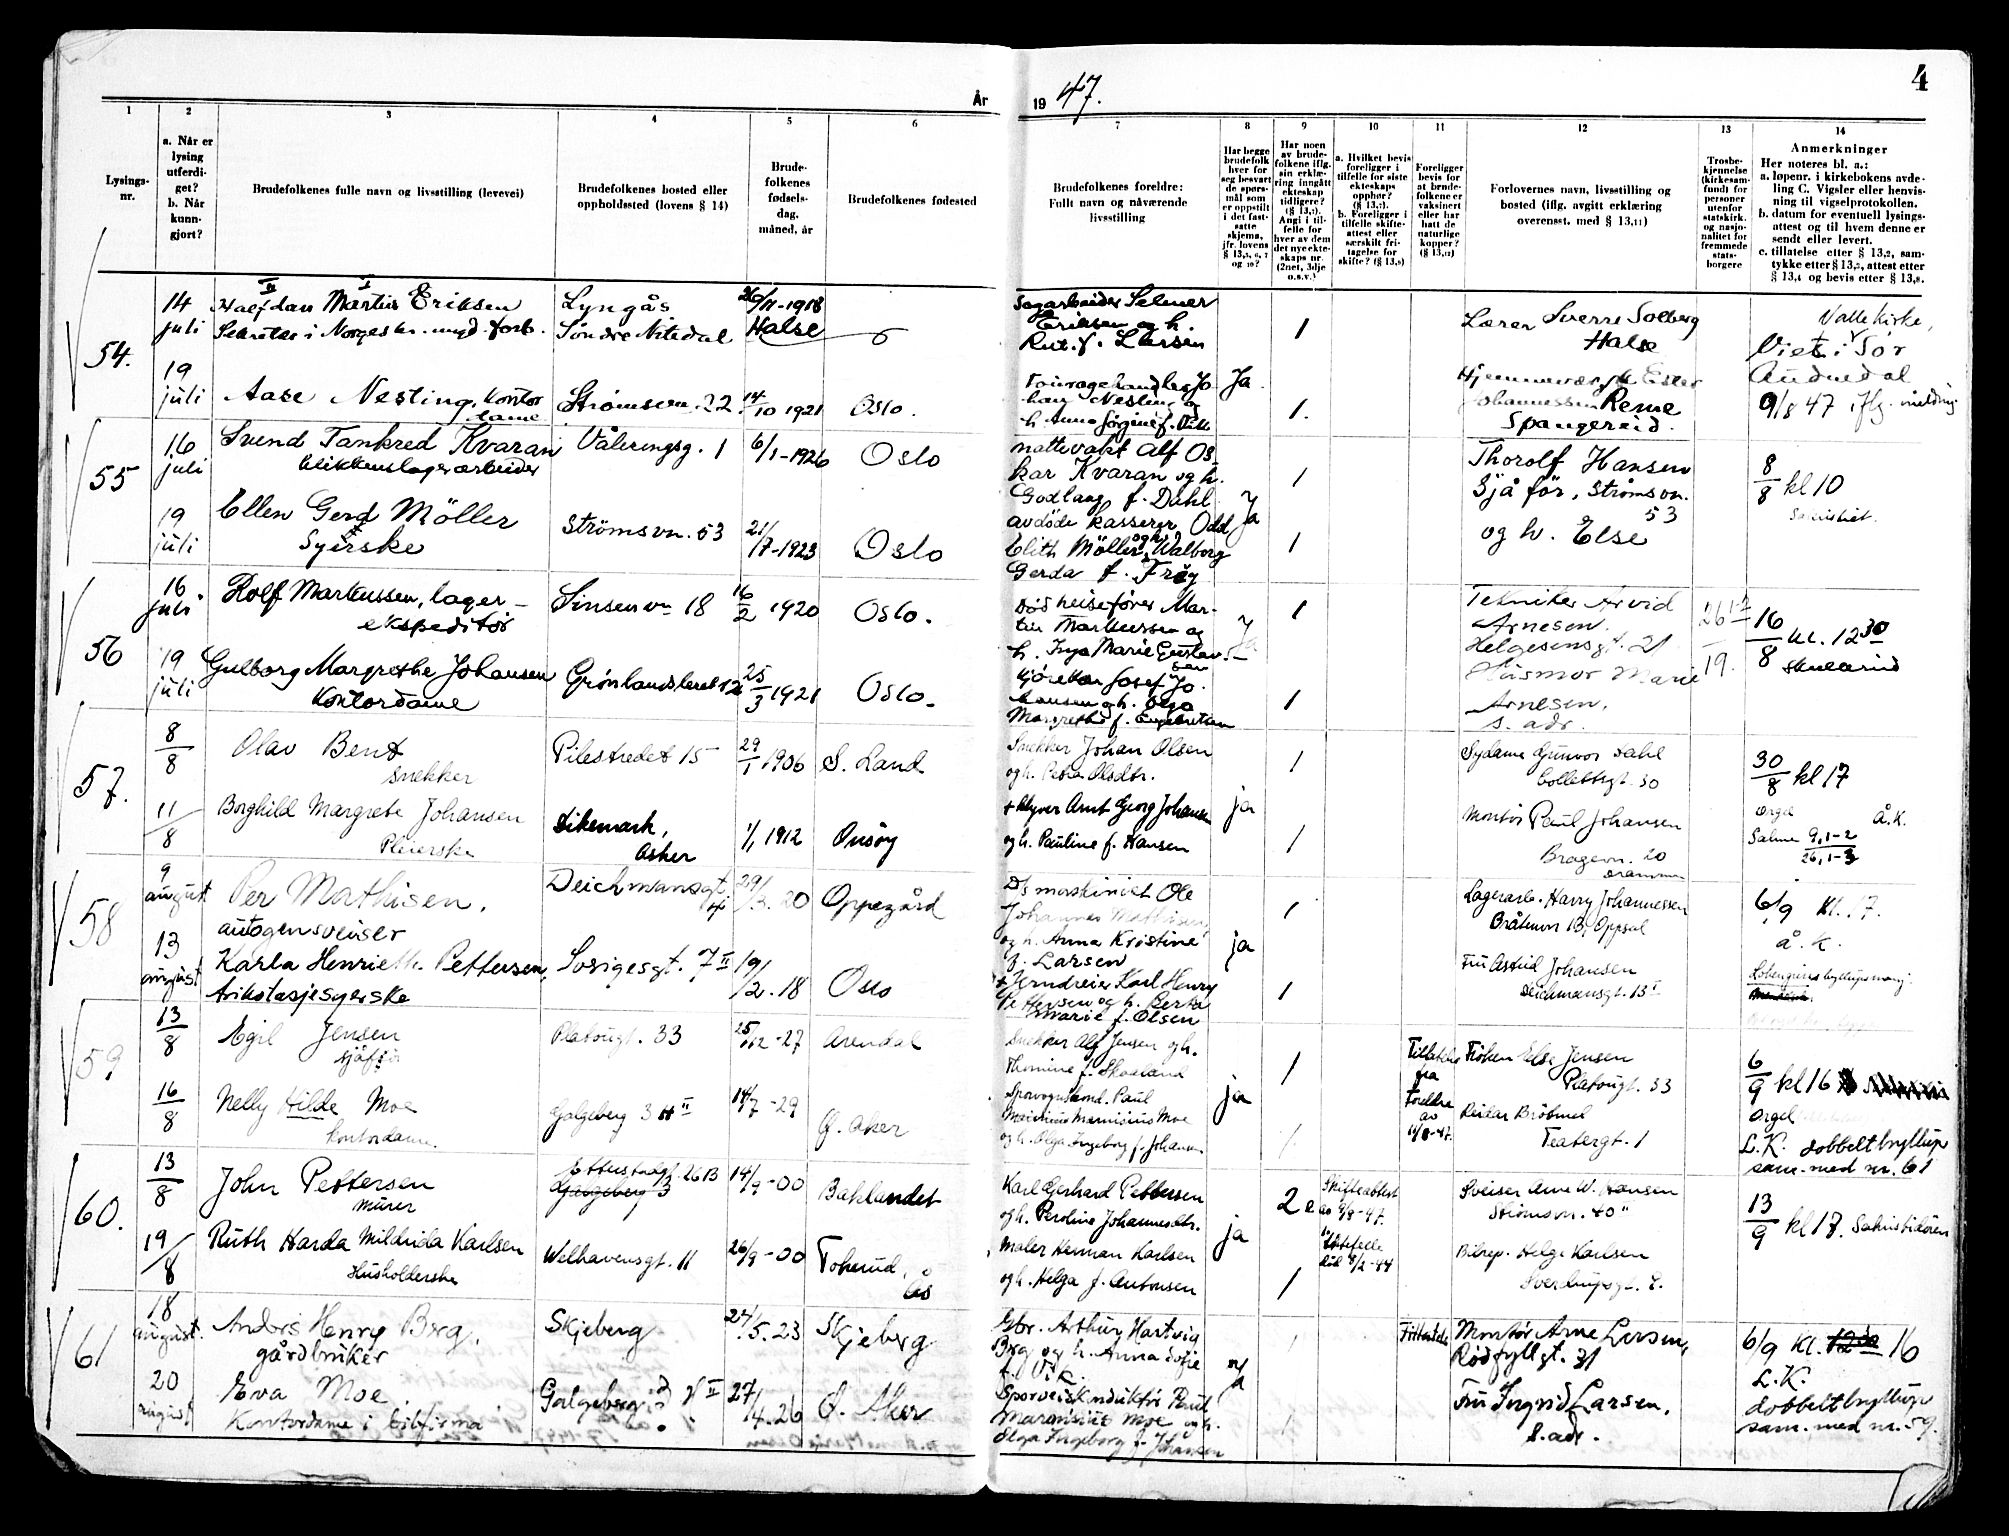 År
19 47.
4
1
2
3
4
5
6
7
8
9
10
11
12
13
14
Lysings-
nr.
a. Når er
lysing
utferdi-
get?
b. Når
kunn-
gjort?
Brudefolkenes fulle navn og livsstilling (levevei)
Brudefolkenes bosted eller
oppholdssted (lovens § 14)
Brude-
folkenes
fødsels-
dag,
måned, år
Brudefolkenes fødested
Brudefolkenes foreldre:
Fullt navn og nåværende
livsstilling
Har begge
brudefolk
hver for
seg besvart
de spørs-
mål som
er oppstilt
i det fast-
satte
skjema,
jfr. lovens
§ 13,5, 6, 7
og 10?
Har noen
av brude-
folkene iflg.
sin erklæ-
ring inngått
ekteskap
tidligere?
(§ 13,7).
Angi i til-
felle for
hver av dem
det nye ekte-
skaps nr.
(2net, 3dje
o.s.v.)
a. Hvilket bevis
foreligger i
tilfelle for siste
ekteskaps
opphør?
(§ 13,7).
b. Foreligger i
tilfelle skifte-
attest eller
særskilt fri-
tagelse for
skifte? (§ 13,8)
Foreligger
bevis for
at brude-
folkene er
vaksinert
eller har
hatt de
naturlige
kopper?
(§ 13,12)
Forlovernes navn, livsstilling og
bosted (iflg. avgitt erklæring
overensst. med § 13,11)
Trosbe-
kjennelse
(kirkesam-
fund) for
personer
utenfor
statskirk.
og nasjo-
nalitet for
fremmede
stats-
borgere
Anmerkninger
Her noteres bl. a.:
a. løpenr. i kirkebokens avde-
ling C. Vigsler eller henvis-
ning til vigselprotokollen.
b. datum for eventuell lysings-
attest og til hvem denne er
sendt eller levert.
c. tillatelse etter § 13,2, sam-
tykke etter § 13,3, attest etter
§ 13,4 og bevis etter § 13,8.
54.
14
juli
19
juli
II I
Halfdan Martin Eriksen
Sekretær i Norges kr. ungd. forb.
Lyngås
Søndre Nitedal
26/11-1918
Halse
Aase Nesting, kontor
dame
Strømsvn. 22.
14/10 1921
Oslo.
Sagarbeider Selmer
Eriksen og h.
Rut. f. Larsen
Ja
1
Johan Nesting og
h Anna Jørgine f.
1.
Lærer Sverre Solberg
Halse
Johannessen Reme
Spangereid.
Valle kirke,
Viet i Sør
Audnedal
9/8 47 iflg. melding
55
16
juli
19
juli
Svend Tankred Kvaran
blikkenslagerarbeider
Vålerengg. 1
6/1-1926
Oslo
Ellen Gerd Möller
Syerske
Strömsvn. 53
21/7-1923
Oslo
nattevakt Alf Os-
kar Kvaran og h.
Godlaug f. Dahl
avdöde kasserer Odd
Elith Möller og h. Walborg
Gerda f. Fröy
Ja
1
1
Thorolf Hansen
Sjåför, Strömsvn.
53
og h. Else
8/8 kl 10
Sakristiet.
56
16
juli
19
juli
Rolf Markussen, lager-
ekspeditør
Sinsenvn 18
16/2 1920
Oslo.
Gulborg Margrethe Johansen
Kontordame
Grønlandsleret 12
25/3 1921
Oslo.
Død heisefører Mar-
tin Markussen og
h. Inga Marie Gustav-
sen
Kjørekar Josef Jo-
hansen og h. Olga
Margrethe f. Engebretsen
Ja
1
1
Tekniker Arvid
Arnesen.
Helgesensgt. 21
Husmor Marie
Arnesen.
s. adr.
19.
16/8 kl. 12 30
57.
8/8
11/8
Olav Bent
Snekker
Pilestredet 15
29/1 1906
S. Land
Borghild Margrete Johansen
Pleierske
Dikemark,
Asker
1/1 1912
Onsøy
Snekker Johan Olsen
og h. Petra Olsdtr.
+ Styver Arnt Georg Johansen
og h. Pauline f. Hansen
ja
1
1
Sydame Gunvor Dahl
Collettsgt. 30
Montør Paul Johansen
Bragevn. 20
Drammen
30/8 kl 17
Orgel
Å.K.
Salme 9,1-2
26,1-3
58
9
august
13
august
Per Mathisen.
autogensveiser
Deichmansgt
29/3. 20
Oppegård
Karla Henriette Pettersen,
Trikotasjesyerske
Sorigesgt. 7 II
19/2. 18
Oslo
D/s maskinist Ole
Johannes Mathisen
og h. Anna Kristine
f. Larsen
+ Jerndreier Karl Henry
Pettersen og h. Berta
Marie f. Olsen
ja
1
1
Lagerarb. Harry Johannessen
Bråtenvn 13, Oppsal
Fru Astrid Johansen
Deichmansgt. 13 I
6/9 Kl. 17.
Å. K.
Lohengrins bryllupsmarsj.
59
13/8
16/8
Egil Jensen
sjåfør
Platougt. 33
25/12-27
Arendal
Nelly Hilde Moe
kontordame.
Galgeberg 3 H II
14/7-29
Ø. Aker
Snekker Alf Jensen og h.
Thomine f. Skaaland
Sporvognskond. Paul
Marinius Moe
og h. Olga Ingeborg f. Johansen
ja
1
1
Tillatelse
fra
Foreldre
av
Frøken Else Jensen
Platougt. 33
Reidar Bråtned
Teatergt. 1
6/9 kl 16
Orgel
L.K. dobbeltbryllup
sam. med nr. 61
60.
13/8
19/8
John Pettersen
murer
Galgeberg 3
Etterstadgt. 26 B
14/9-00
Baklandet
Ruth Harda Mildrida Karlsen
Husholderske
Welhavensgt. 11
26/9-00
Tokerud,
Ås
Karl Gerhard Pettersen
og h. Peroline Johannesdtr.
Maler Herman Karlsen
og h. Helga f. Antonsen
ja
2
1
Skifteattest
av 9/8-47.
Ektefelle
død 8/2-44
Sveiser Arne W. Hansen
Strömsvn. 40 "
Bilrep. Helge Karlsen
Sverdrupsgt. 8.
13/9 kl 17. Sakristidören
61
18
august.
20
august
Anders Henry Berg.
gårdbruker
Skjeberg
24/5. 23
Skjeberg
Eva Moe
Kontordame i bilfirma
Galgeberg 3 H II
27/4. 26
Ø. Aker
Gbr. Arthur Hartvig
Berg og h. Anna Sofie
f. Vik.
Sporveiskonduktør Paul
Maransius Moe og h.
Olga Ingeborg f. Johansen
ja
1
1
Montør Arne Larsen,
Rødfyllgt. 31
Fru Ingrid Larsen.
s. adr.
6/9 kl. 12 30 16
L.K.
dobbeltbryllup
sam. med nr. 59.